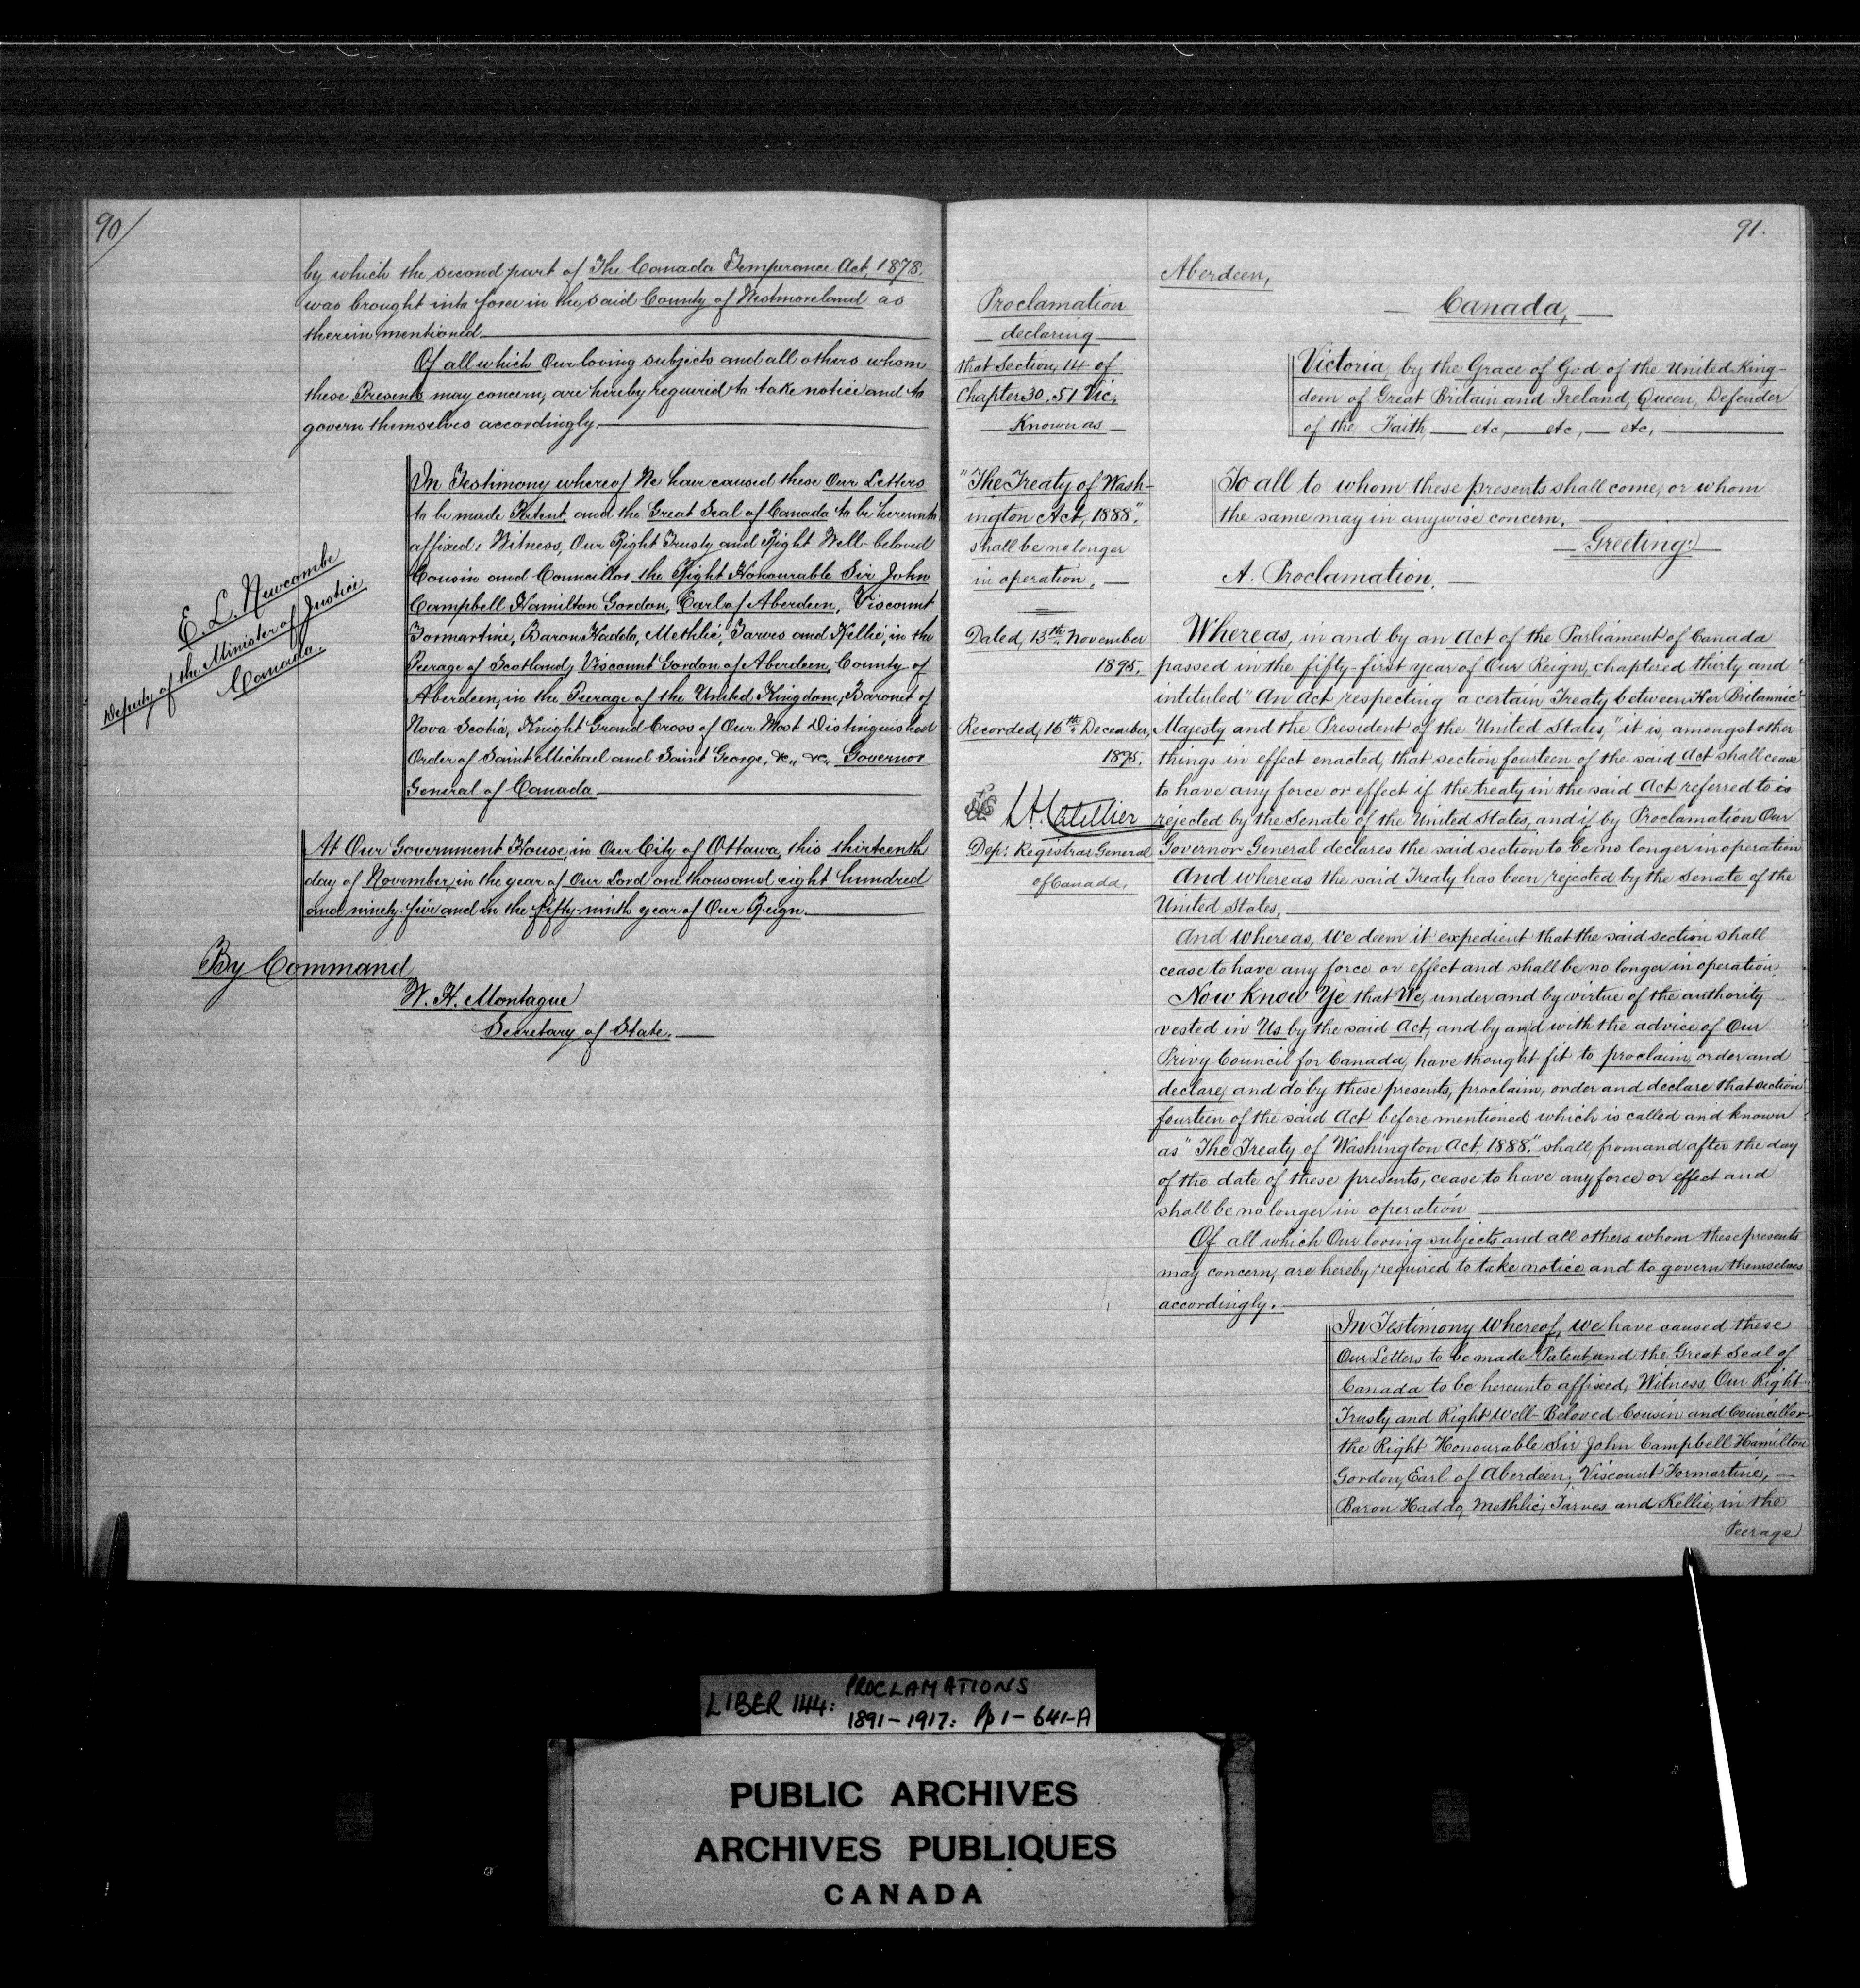 90/
by which the second part of The Canada Temperance Act, 1878.
was brought into force in the said County of Westmoreland as
therein mentioned.
Of all which Our loving subjects and all others whom
these Presents may concern, are hereby required to take notice and to
govern themselves accordingly.
In Testimony whereof We have caused these Our Letters
to be made Patent, and the Great Seal of Canada to be hereunto
affixed: Witness, Our Right Trusty and Right Well-beloved
Cousin and Councillor the Right Honourable Sir John
Campbell Hamilton Gordon, Earl of Aberdeen, Viscount
Formartine, Baron Haddo, Methlic, Tarves and Kellie, in the
Peerage of Scotland, Viscount Gordon of Aberdeen, County of
Aberdeen, in the Peerage of the United Kingdom, Baronet of
Nova Scotia, Knight Grand Cross of Our Most Distinguished
Order of Saint Michael and Saint George, &c., &c., Governor
General of Canada
E. L. Newcombe
Deputy of the Minister of Justice
Canada.
At Our Government House, in Our City of Ottawa, this thirteenth
day of November in the year of Our Lord one thousand eight hundred
and ninety-five and in the fifty-ninth year of Our Reign.
By Command
W. H. Montague
Secretary of State.
91.
Proclamation
declaring
that Section 14 of
Chapter 30, 51 Vic,
Known as
"The Treaty of Wash-
ington Act, 1888".
shall be no longer
in operation.
Dated, 13th November
1895.
Recorded, 16th December,
1895.
Dep. Registrar General
of Canada.
Aberdeen,
Canada,
Victoria, by the Grace of God of the United King-
dom of Great Britain and Ireland, Queen, Defender
of the Faith, etc, etc, etc,
To all to whom these presents shall come, or whom
the same may in anywise concern.
Greeting:
A. Proclamation.
Whereas, in and by an Act of the Parliament of Canada
passed in the fifty-first year of Our Reign, chaptered thirty and
intituled "An Act respecting a certain Treaty between Her Britannic
Majesty and the President of the United States," it is, amongst other
things in effect enacted, that section fourteen of the said Act shall cease
to have any force or effect if the treaty in the said Act referred to is
rejected by the Senate of the United States, and if by Proclamation Our
Governor General declares the said section to be no longer in operation
And whereas the said Treaty has been rejected by the Senate of the
United States.
And whereas, We deem it expedient that the said section shall
cease to have any force or effect and shall be no longer in operation.
Now Know Ye that We, under and by virtue of the authority
vested in Us by the said Act, and by and with the advice of Our
Privy Council for Canada, have thought fit to proclaim, order and
declare, and do by these presents, proclaim, order and declare that section
fourteen of the said Act before mentioned which is called and known
as "The Treaty of Washington Act, 1888." shall from and after the day
of the date of these presents, cease to have any force or effect and
shall be no longer in operation
Of all which Our loving subjects and all others whom these presents
may concern, are hereby required to take notice and to govern themselves
accordingly.
In Testimony Whereof, We have caused these
Our Letters to be made Patent and the Great Seal of
Canada to be hereunto affixed, Witness, Our Right
Trusty and Right Well-Beloved Cousin and Councillor
the Right Honourable Sir John Campbell Hamilton
Gordon, Earl of Aberdeen; Viscount Formartine,
Baron Haddo, Methlic, Tarves and Kellie, in the
Peerage
LIBER 144: PROCLAMATIONS
1891-1917: Pp 1-641-A
PUBLIC ARCHIVES
ARCHIVES PUBLIQUES
CANADA